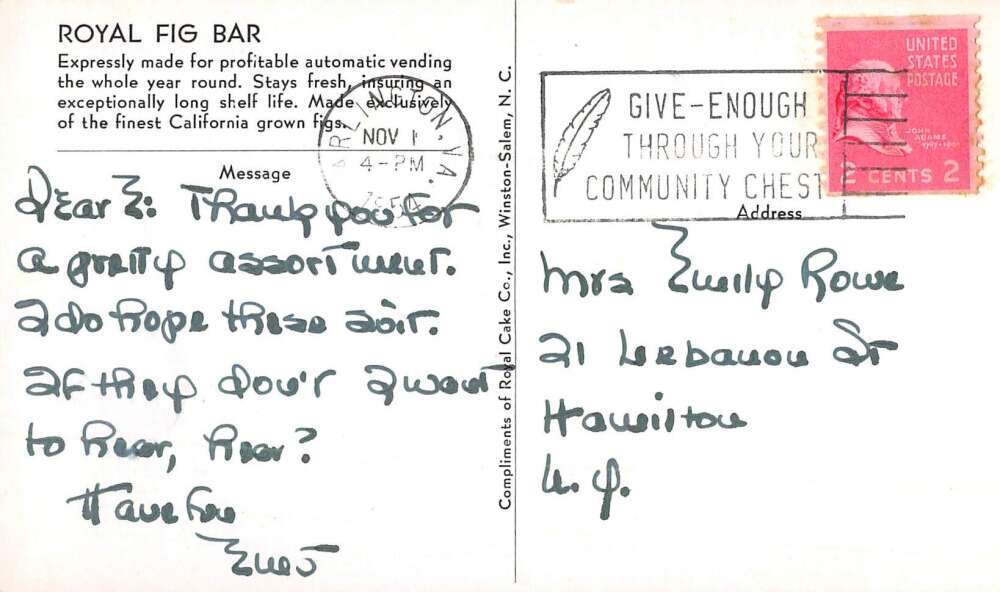 ROYAL FIG BAR
Expressly made for profitable automatic vending
the whole year round. Stays fresh, insuring an
exceptionally long shelf life. Made exclusively
of the finest California grown figs.
ARLINGTON, VA.
NOV 1
4-PM
1954
GIVE-ENOUGH
THROUGH YOUR
COMMUNITY CHEST
UNITED
STATES
POSTAGE
JOHN
ADAMS
2 CENTS 2
Message
Dear E: Thank you for
a pretty assortment.
I do hope these suit.
If they don't I want
to hear, hear?
Have fun
Compliments of Royal Cake Co., Inc., Winston-Salem, N. C.
Address
Mrs Emily Rowe
21 Lebanon St
Hamilton
N.Y.